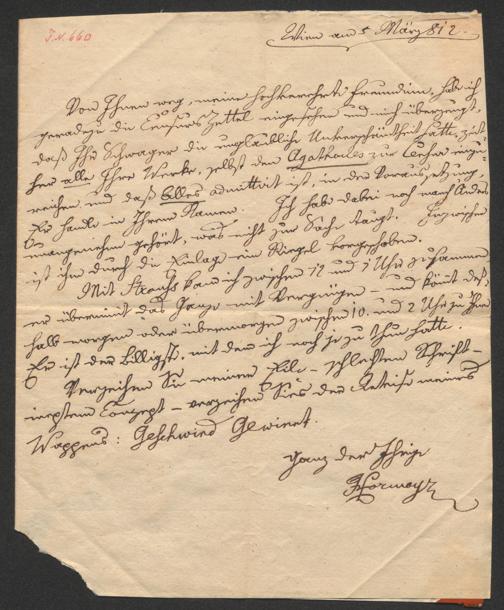 I.N. 660
Wien am 5 März 812.
Von Ihnen weg, meine hochverehrte Freundinn, hab ich
geradezu die Censurs Zettel eingesehen und mich überzeugt,
daß Ihr Schwager die unglaubliche Unverschämtheit hatte, zeit
her alle Ihre Werke, selbst den Agathocles zur Censur einzu
reichen und daß Alles admittirt ist, in der Voraussetzung,
Er handle in Ihrem Namen. Ich hab dabei noch manch Andres
unangenehme gehört, was nicht zur Sache taugt. Inzwischen
ist ihm durch die Anlage ein Riegel vorgeschoben.
Mit Strauß kam ich zwischen 12 und 1 Uhr zusammen
er übernimt das Ganze mit Vergnügen – und kömt deß
halb morgen oder übermorgen zwischen 10. und 2 Uhr zu Ihnen
Er ist der billigste, mit dem ich noch je zu thun hatte.
Verzeihen Sie meinem Eile – schlechten Schrift –
Conzept – verzeihen Sies der Devise meines
Wappens: Geschwind Gewinnt.
Ganz der Ihrige
Hormayr